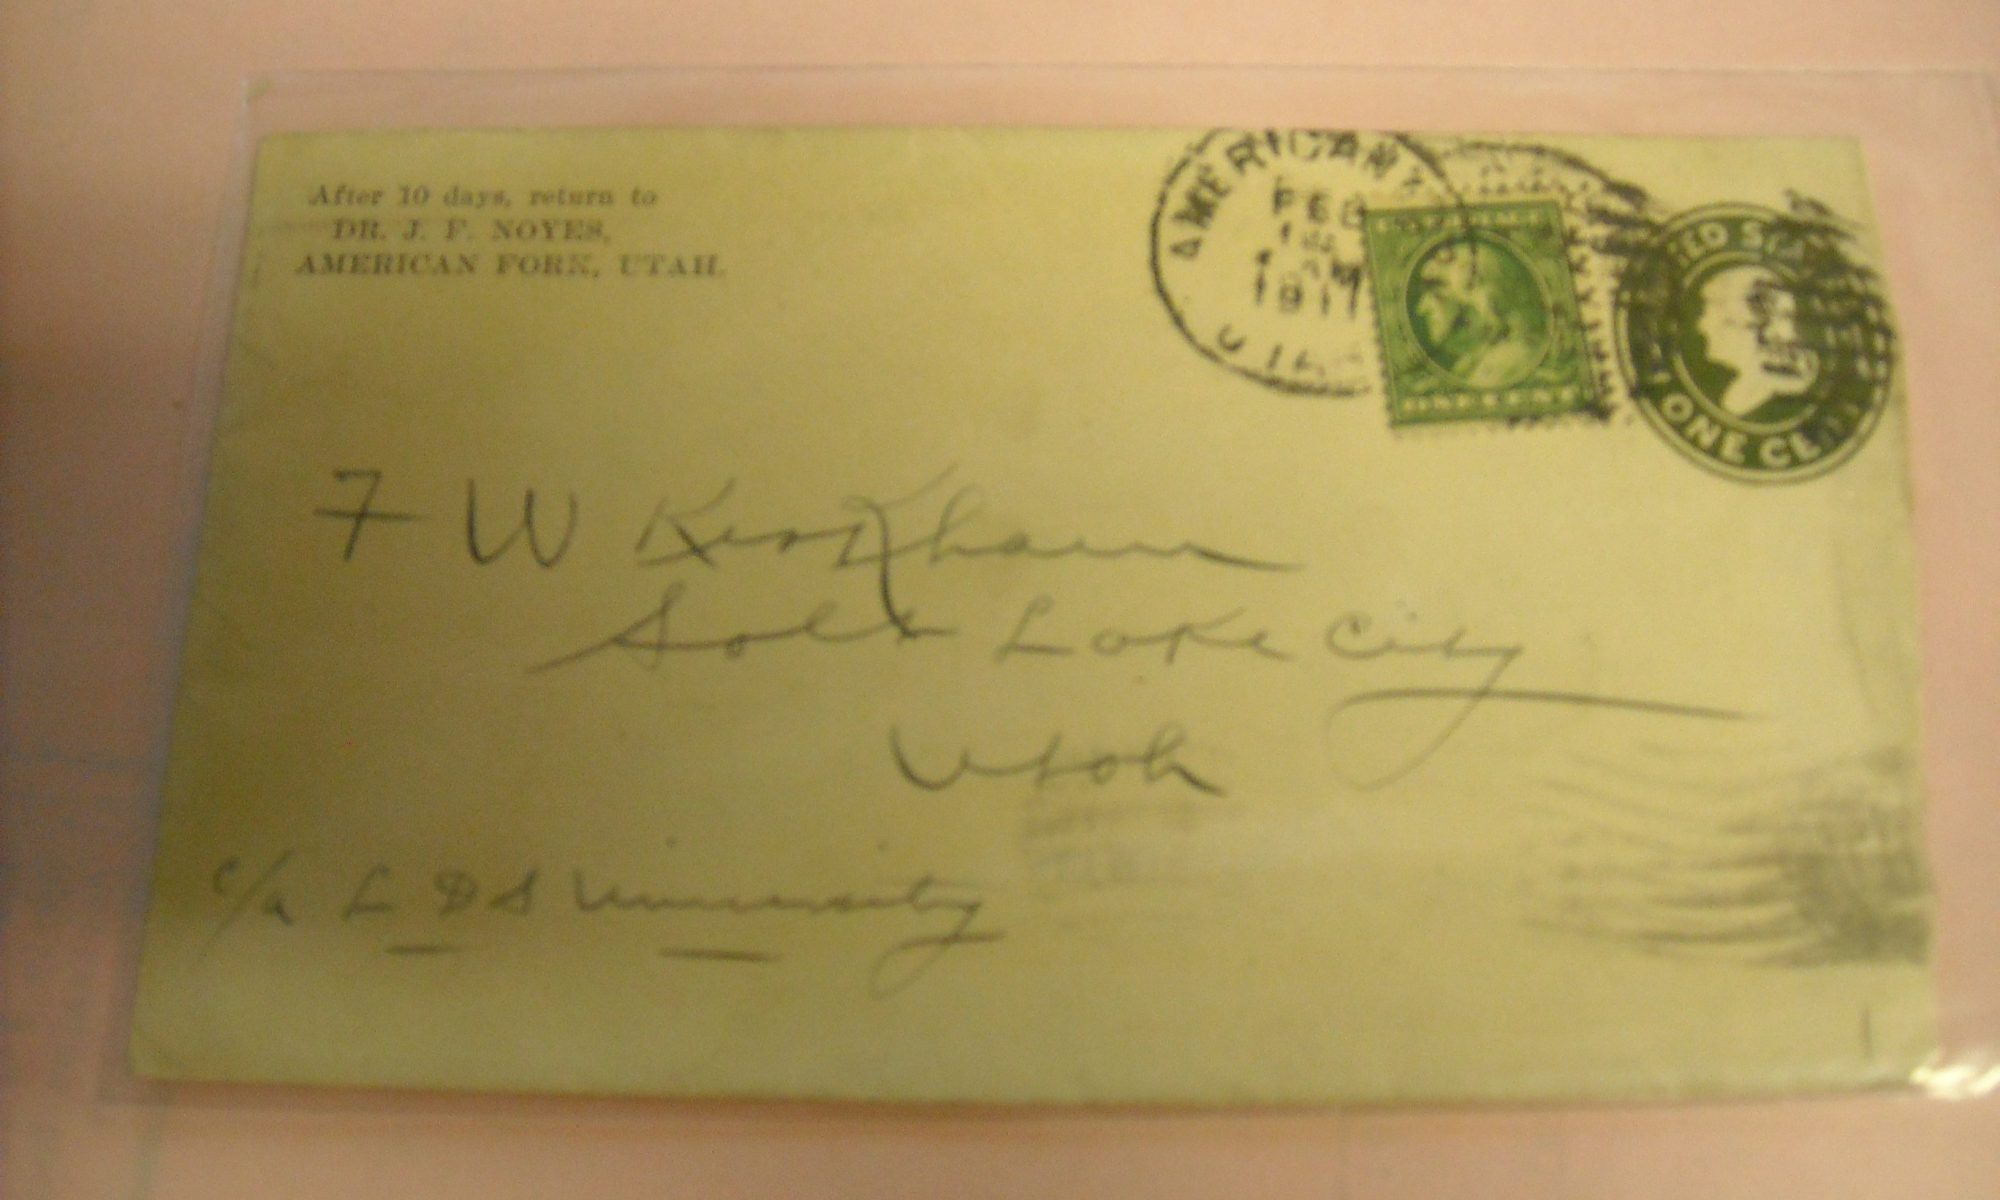 After 10 days, return to
DR. J. F. NOYES,
AMERICAN FORK, UTAH.
AMERICAN
FEB
1911
ONE CENT
UNITED STA
ONE CE
F W Kirkham
Salt Lake City
Utah
c/o L D S University